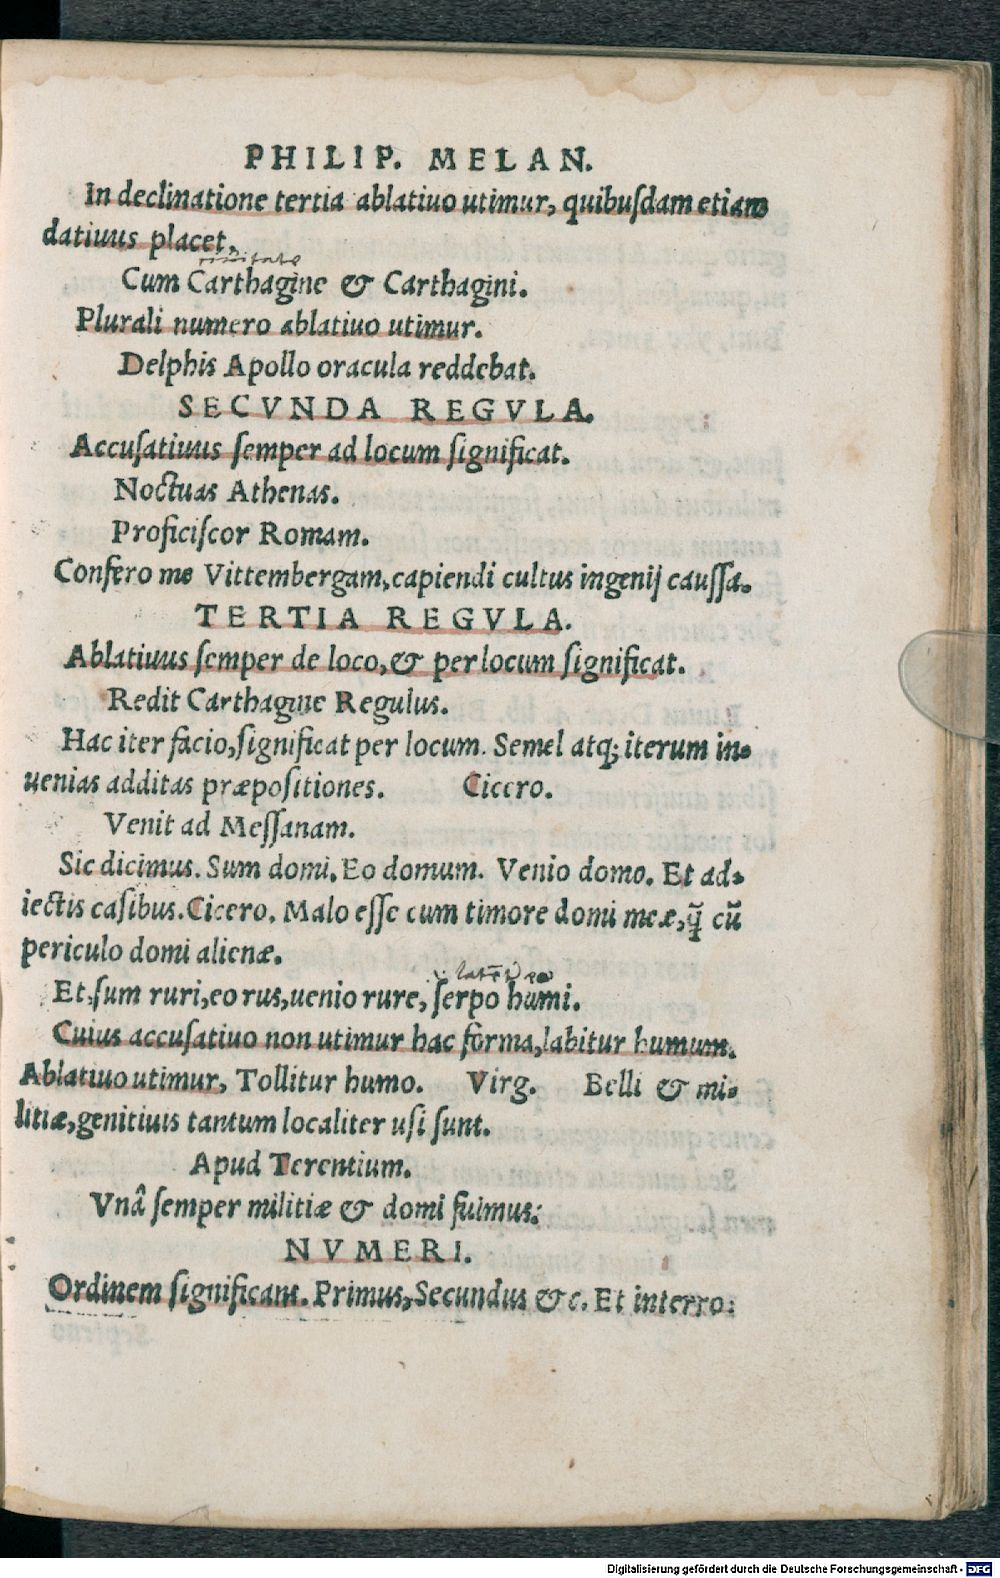 PHILIP. MELAN.
In declinatione tertia ablatiuo utimur, quibuſdam etiam
datiuus placet.
ciuitate
Cum Carthagine & Carthagini.
Plurali numero ablatiuo utimur.
Delphis Apollo oracula reddebat.
SECVNDA REGVLA.
Accuſatiuus ſemper ad locum ſignificat.
Noctuas Athenas.
Proficiſcor Romam.
Confero me Vittembergam, capiendi cultus ingenij cauſſa.
TERTIA REGVLA.
Ablatiuus ſemper de loco, & per locum ſignificat.
Redit Carthagine Regulus.
Hac iter facio, ſignificat per locum. Semel atq; iterum in-
uenias additas præpoſitiones. Cicero.
Venit ad Meſſanam.
Sic dicimus. Sum domi. Eo domum. Venio domo. Et ad-
iectis caſibus. Cicero. Malo eſſe cum timore domi meæ, q̃ cũ
periculo domi alienæ.
Et, ſum ruri, eo rus, uenio rure, ſerpo humi.
Cuius accuſatiuo non utimur hac forma, labitur humum.
Ablatiuo utimur, Tollitur humo. Virg. Belli & mi-
litiæ, genitiuis tantum localiter uſi ſunt.
Apud Terentium.
Vnâ ſemper militiæ & domi fuimus:
NVMERI.
Ordinem ſignificant. Primus, Secundus &c. Et interro:
Digitalisierung gefördert durch die Deutsche Forschungsgemeinschaft - DFG